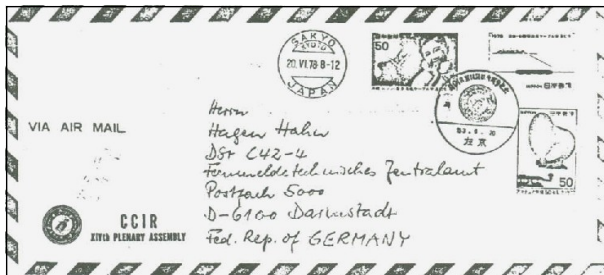 SAKYO
KYOTO
20.VI.78.8-12
JAPAN
50
1978
NIPPON
53.6.20
左京
50
VIA AIR MAIL
Herrn
Hagen Hahn
DSt C42-4
Fernmeldetechnisches Zentralamt
Postfach 5000
D-6100 Darmstadt
Fed. Rep. of GERMANY
CCIR
XIVth PLENARY ASSEMBLY